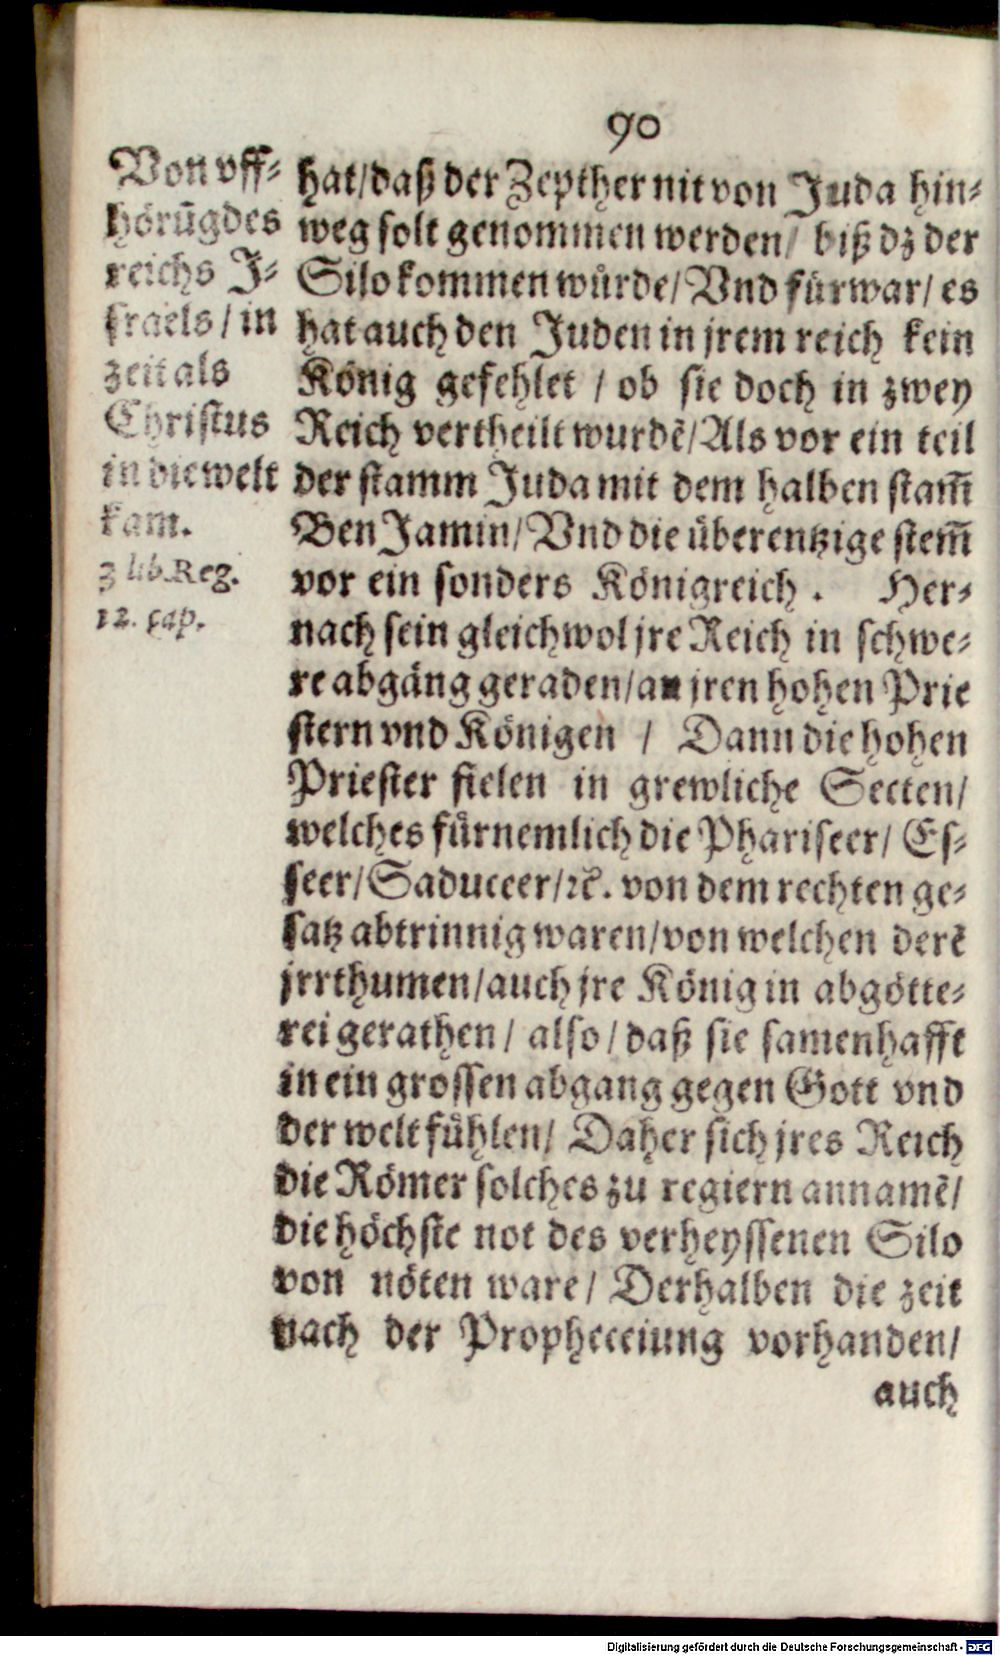 90
Von vff-
hörũgdes
reichs J-
sraels / in
zeit als
Christus
in die welt
kam.
3 lib. Reg.
12. cap.
hat/daß der Zepther nit von Juda hin-
weg solt genommen werden/ biß dz der
Silo kommen wůrde/ Vnd fürwar/ es
hat auch den Juden in jrem reich kein
König gefehlet / ob sie doch in zwey
Reich vertheilt wurdẽ/ Als vor ein teil
der stamm Juda mit dem halben stam̃
Ben Jamin/ Vnd die überentzige stem̃
vor ein sonders Königreich . Her-
nach sein gleichwol jre Reich in schwe-
re abgäng geraden/an jren hohen Prie
stern vnd Königen / Dann die hohen
Priester fielen in grewliche Secten/
welches fürnemlich die Phariseer/ Es-
seer/ Saduceer/ꝛc̃. von dem rechten ge-
satz abtrinnig waren/von welchen derẽ
jrrthumen/auch jre König in abgötte-
rei gerathen/ also/ daß sie samenhafft
in ein grossen abgang gegen Gott vnd
der welt fühlen/ Daher sich jres Reich
die Römer solches zu regiern annamẽ/
die höchste not des verheyssenen Silo
von nöten ware/ Derhalben die zeit
nach der Propheceiung vorhanden/
auch
Digitalisierung gefördert durch die Deutsche Forschungsgemeinschaft - DFG